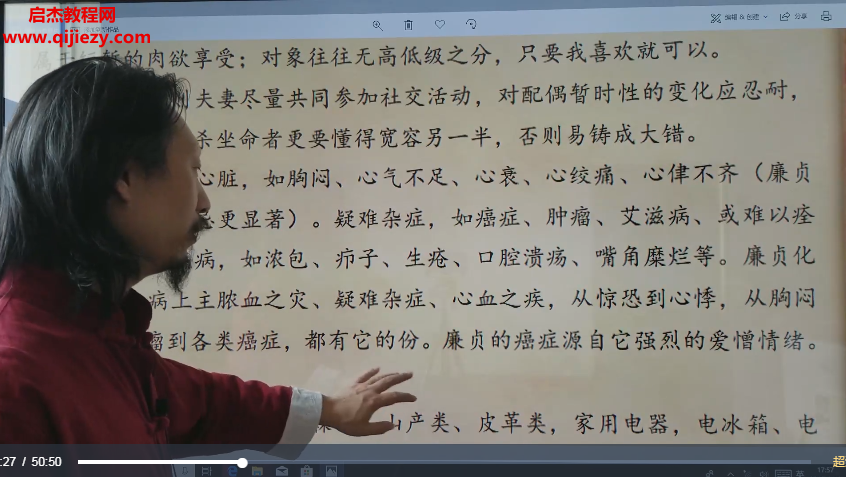 启杰教程网
www.qijiezy.com
编辑 & 创建
分享
的肉欲享受；对象往往无高低级之分，只要我喜欢就可以。
夫妻尽量共同参加社交活动，对配偶暂时性的变化应忍耐，
杀坐命者更要懂得宽容另一半，否则易铸成大错。
心脏，如胸闷、心气不足、心衰、心绞痛、心律不齐（廉贞
更显著）。疑难杂症，如癌症、肿瘤、艾滋病、或难以痊
病，如浓包、疖子、生疮、口腔溃疡、嘴角糜烂等。廉贞化
病上主脓血之灾、疑难杂症、心血之疾，从惊恐到心悸，从胸闷
瘤到各类癌症，都有它的份。廉贞的癌症源自它强烈的爱憎情绪。
山产类、皮革类，家用电器，电冰箱、电
:27 / 50:50
超
17:57